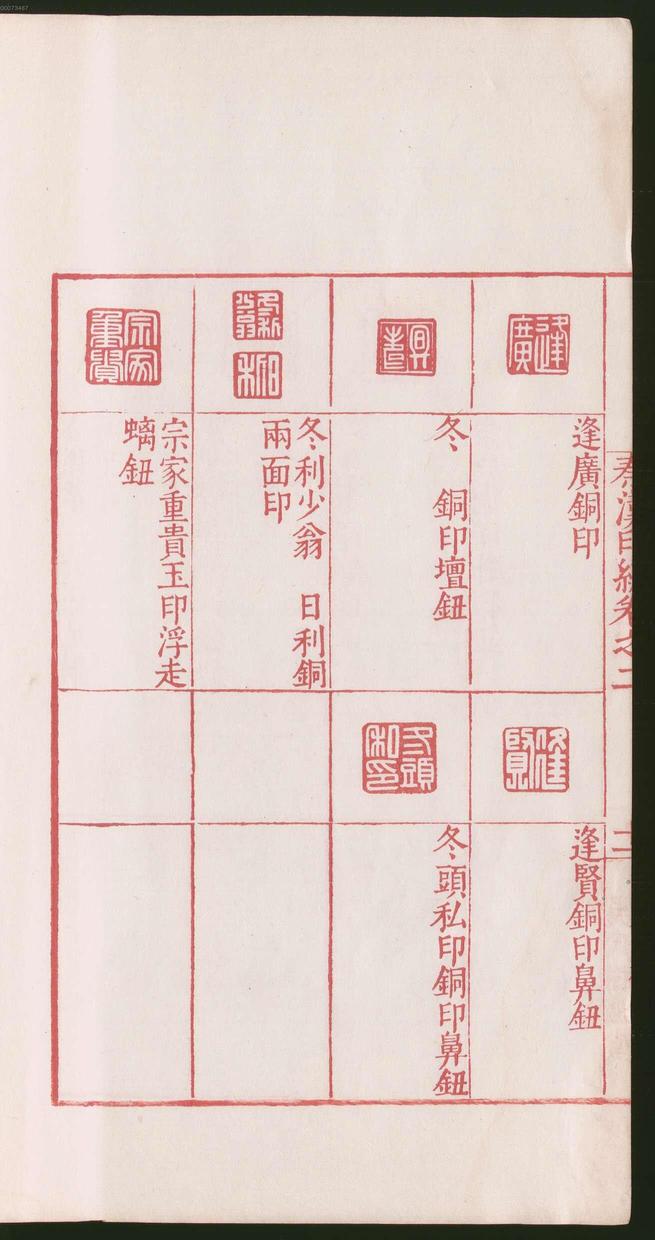 00073467
秦漢印統卷之二
二
逢廣
逢廣銅印
逢賢
逢賢銅印鼻鈕
冬　銅印壇鈕
冬頭私印
冬頭私印銅印鼻鈕
冬利少翁　日利銅
兩面印
宗家重貴
宗家重貴玉印浮走
螭鈕